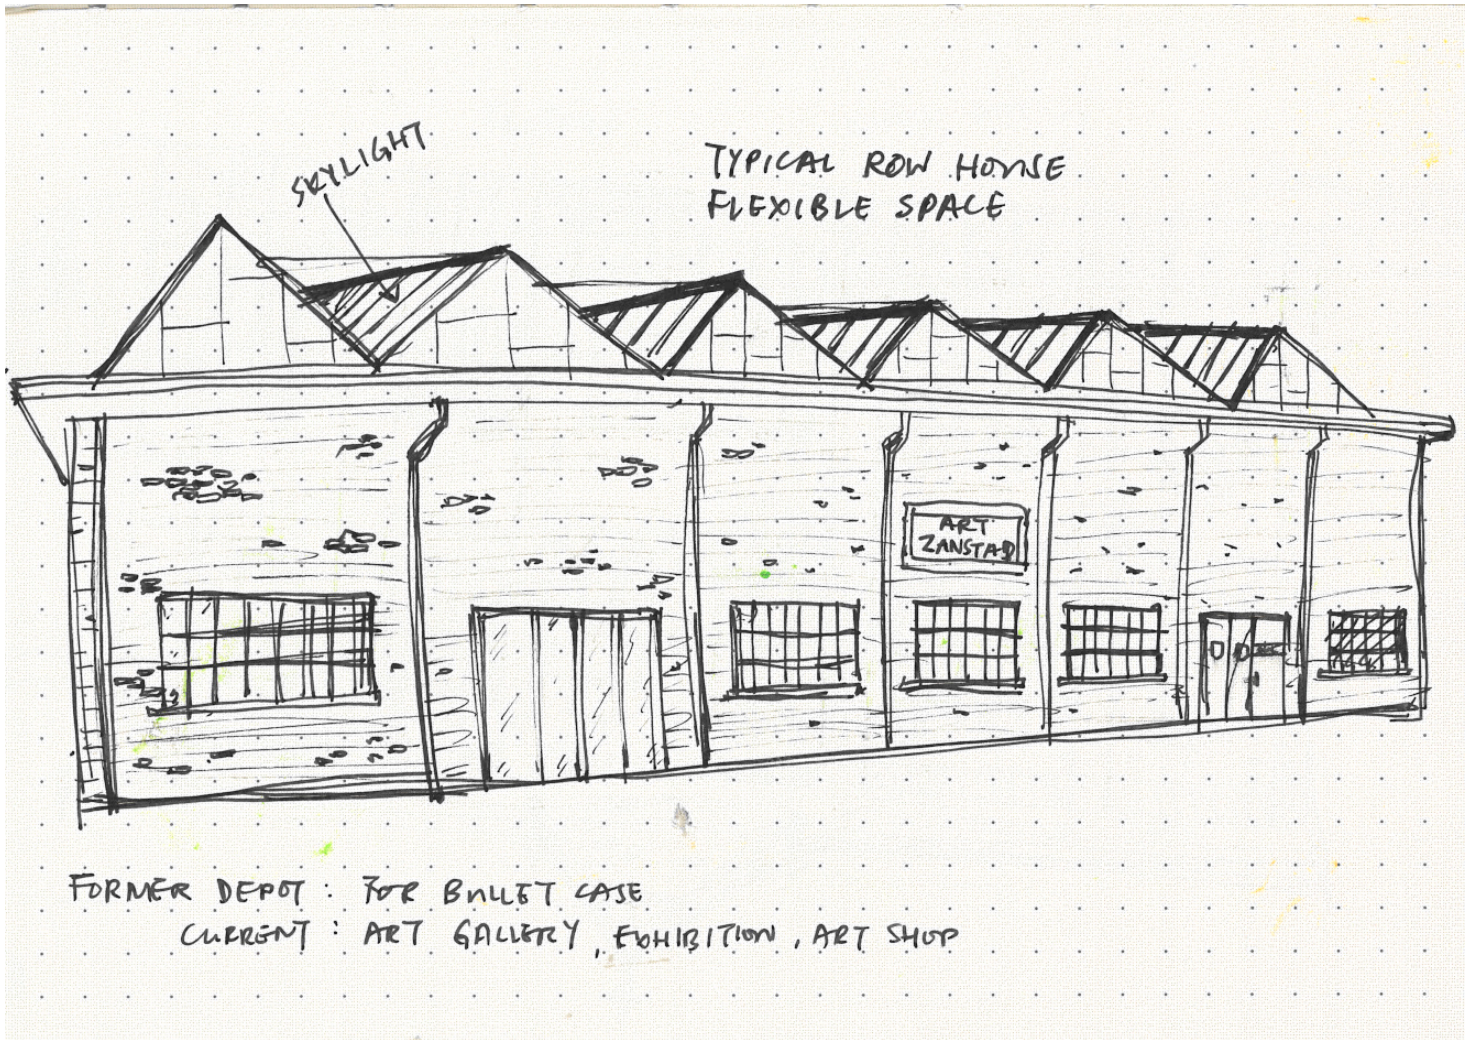 SKYLIGHT
TYPICAL ROW HOUSE
FLEXIBLE SPACE
ART
ZANSTAD
FORMER DEPOT : FOR BULLET CASE
CURRENT : ART GALLERY, EXHIBITION, ART SHOP